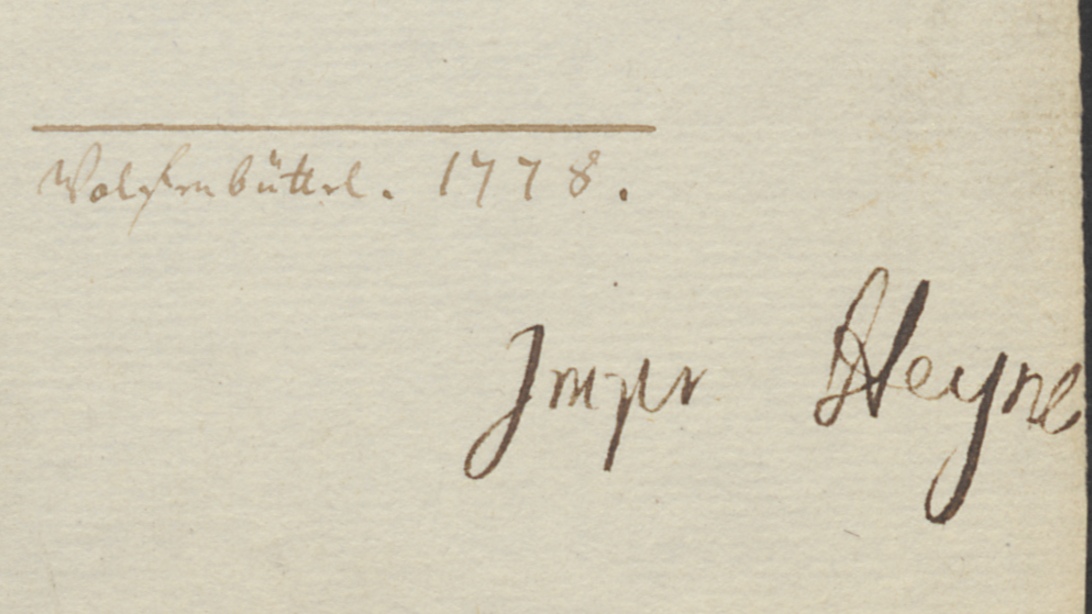 Wolfenbüttel. 1778.
Impr Heyne